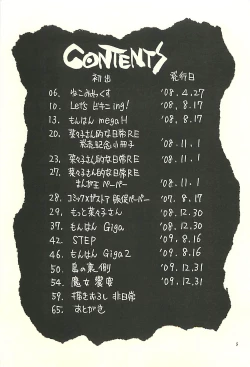 CONTENTS
初出 発行日
06. ねこみっくす '08.4.27
10. Let's ビキニing! '08.8.17
13. もんはん megaH '08.8.17
20. 菜々子さん的な日常RE
発売記念小冊子 '08.11.1
23. 菜々子さん的な日常RE '08.11.1
27. 菜々子さん的な日常RE
まんが王 ペーパー '08.11.1
28. コミックスザストア 販促ペーパー '07.8.17
29. もっと菜々子さん '08.12.30
37. もんはん Giga '08.12.30
42. STEP '09.8.16
46. もんはん Giga2 '09.8.16
50. 島の裏側 '09.12.31
54. 魔女饗宴 '09.12.31
59. 描きおろし 非日常
65. あとがき